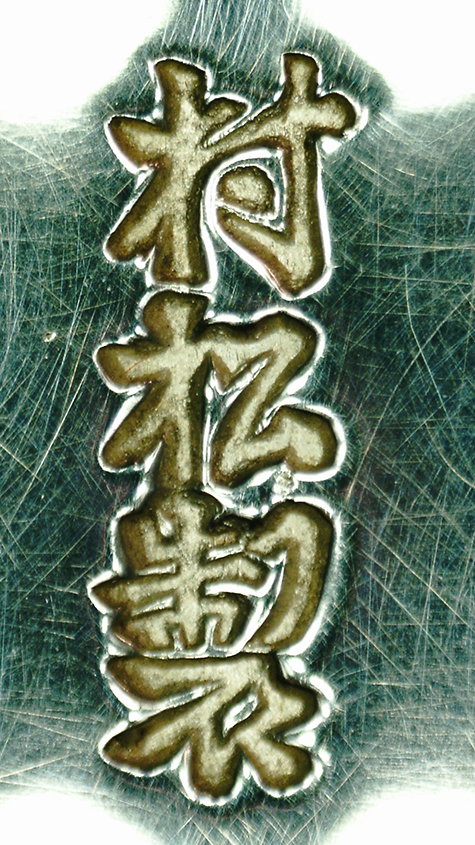 村松製